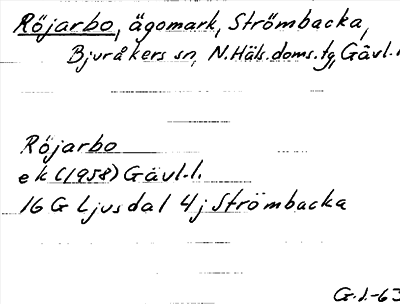 Röjarbo, ägomark, Strömbacka,
Bjuråkers sn, N.Häls.doms.tg, Gävl.l.
Röjarbo
ek (1958) Gävl.l.
16 G Ljusdal 4j Strömbacka
G.J.-63